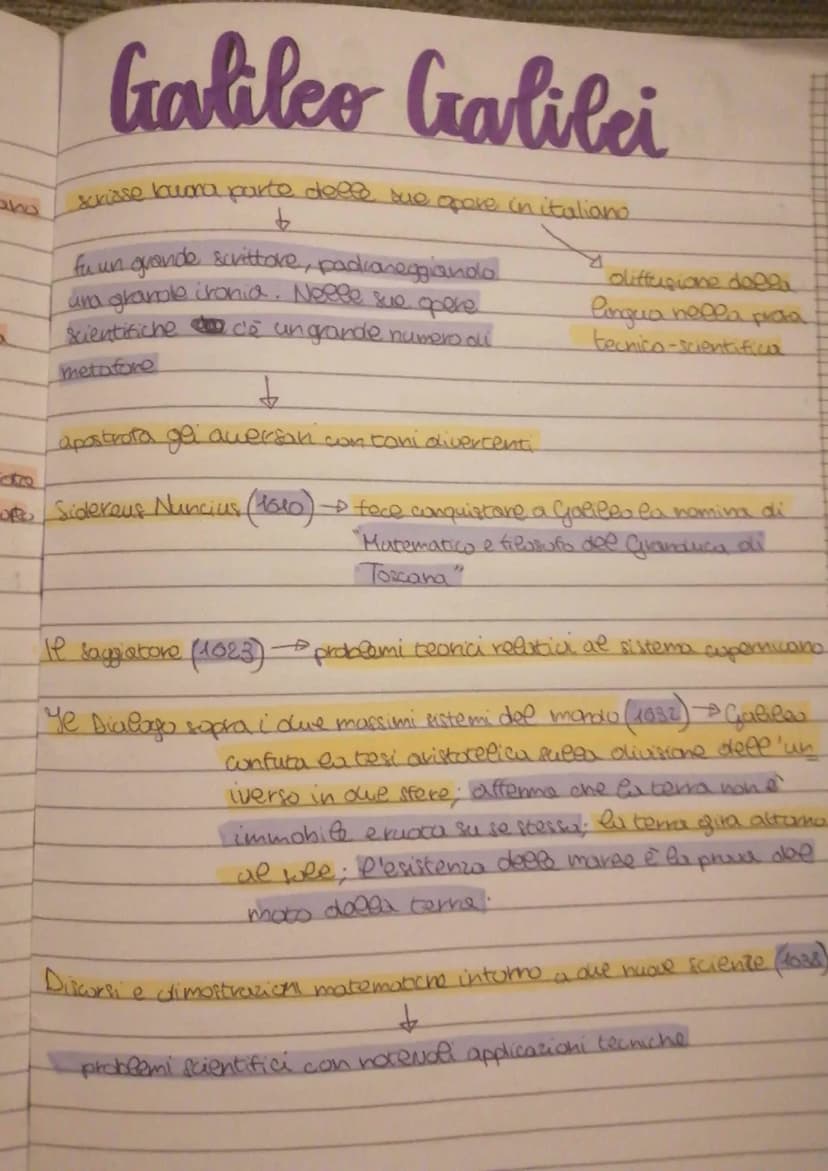 Galileo Galilei
scrisse buona parte delle sue opere in italiano
↓
fu un grande scrittore, padroneggiando
una grande ironia. Nelle sue opere
scientifiche c'è un grande numero di
metafore
diffusione della
lingua nella prosa
tecnico-scientifica
↓
apostrofa gli avversari con toni divertenti
Sidereus Nuncius (1610) → fece conquistare a Galileo la nomina di
"Matematico e filosofo del Granduca di
Toscana"
Il saggiatore (1623) → problemi teorici relativi al sistema copernicano
Il Dialogo sopra i due massimi sistemi del mondo (1632) → Galileo
confuta la tesi aristotelica sulla divisione dell'un
iverso in due sfere; afferma che la terra non è
immobile e ruota su se stessa; la terra gira attorno
al sole; l'esistenza delle maree è la prova del
moto della terra.
Discorsi e dimostrazioni matematiche intorno a due nuove scienze (1638)
↓
problemi scientifici con notevoli applicazioni tecniche